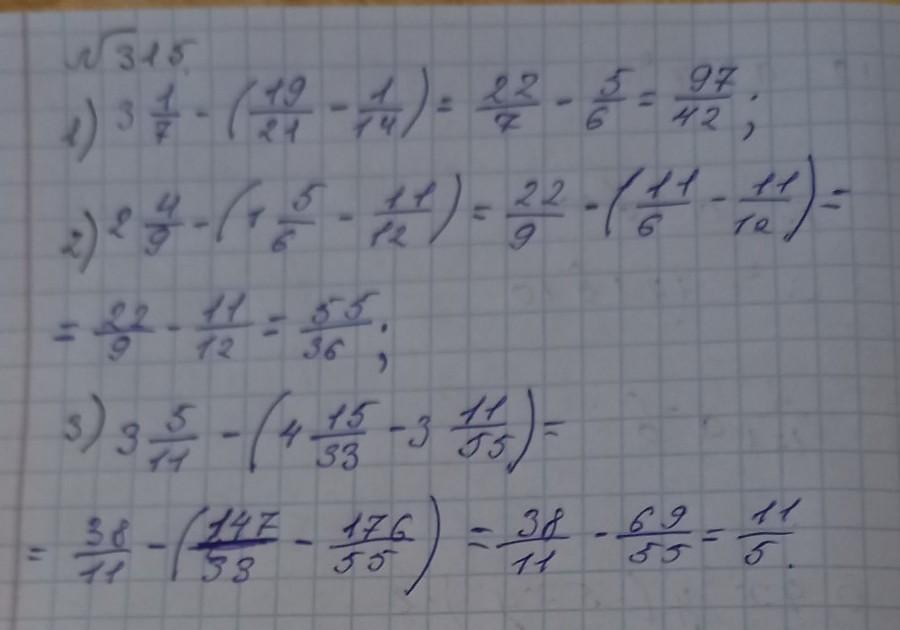 №315.
1) 3 1/7 - (19/21 - 1/14) = 22/7 - 5/6 = 97/42;
2) 2 4/9 - (1 5/6 - 11/12) = 22/9 - (11/6 - 11/12) =
= 22/9 - 11/12 = 55/36;
3) 3 5/11 - (4 15/33 - 3 11/55) =
= 38/11 - (147/33 - 176/55) = 38/11 - 69/55 = 11/5.